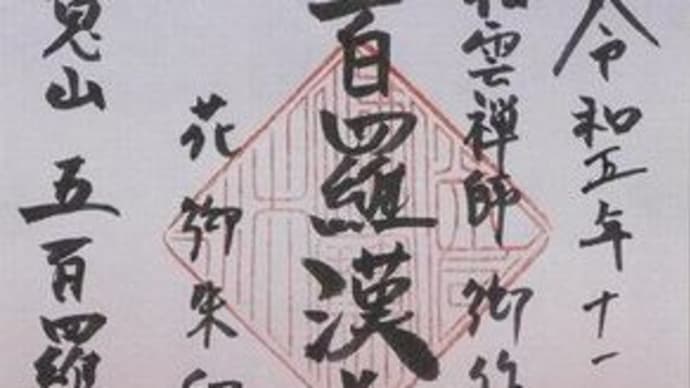 令和五年十一
雲禅師 御作
百羅漢
花御朱印
山 五百羅